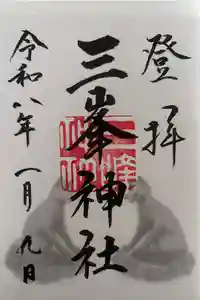 登拝
三峯神社
令和八年一月九日